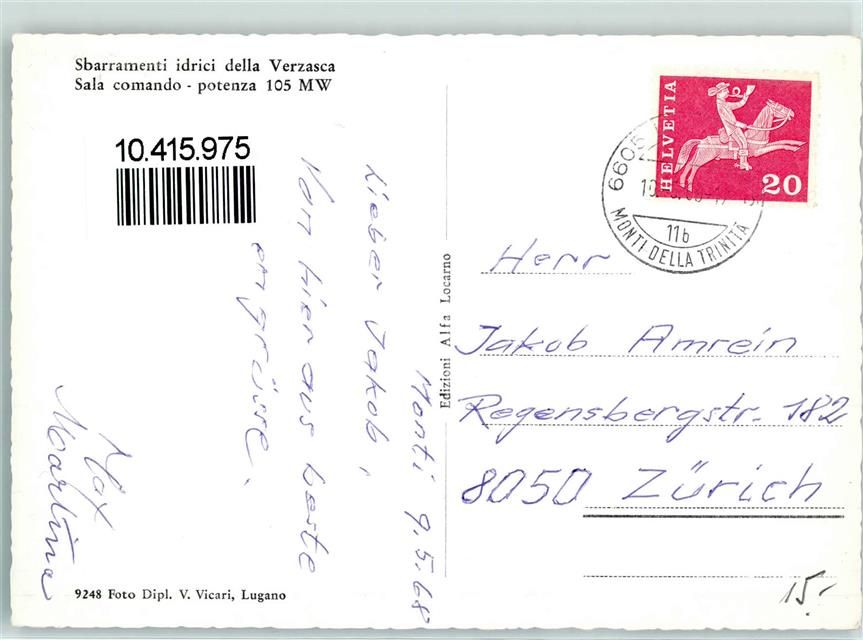 Sbarramenti idrici della Verzasca
Sala comando - potenza 105 MW
10.415.975
Monti 9.5.68
Lieber Jakob,
Von hier aus beste
engrüsse.
Max
Martina
9248 Foto Dipl. V. Vicari, Lugano
Edizioni Alfa Locarno
HELVETIA
20
6605
11b
MONTI DELLA TRINITÀ
Herr
Jakob Amrein
Regensbergstr. 182
8050 Zürich
15.-